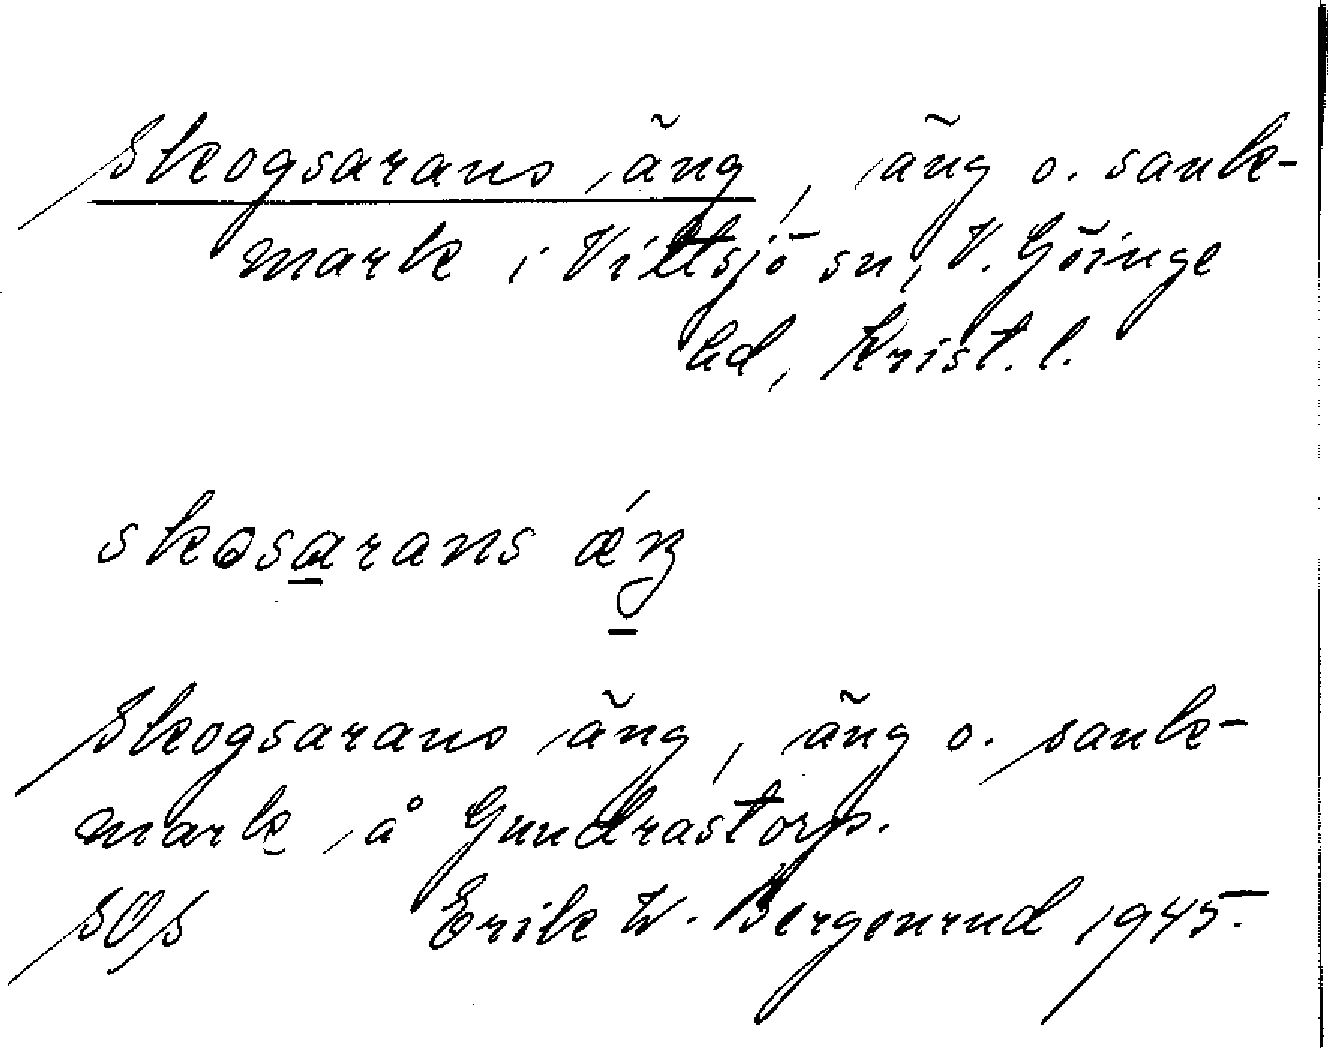 Skogsarans äng, äng o. sank-
mark i Vittsjö sn, V. Göinge
hd, Krist. l.
skosarans ǽŋ
Skogsarans äng, äng o. sank-
mark å Gundrastorp.
SOS Erik W. Bergenrud 1945.